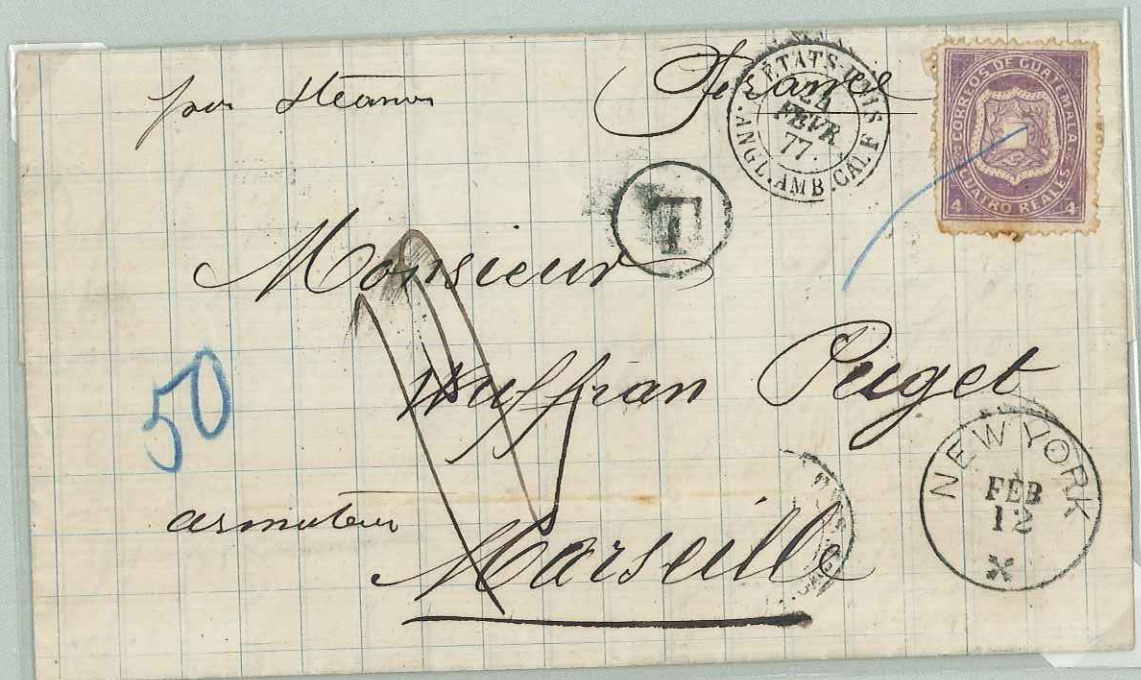 per steamer
France
ÉTATS-UNIS
24
FEVR
77.
ANGL. AMB. CAL. F
CORREOS DE GUATEMALA
CUATRO REALES
4 4
T
Monsieur
Wulffran Puget
50
armateur
Marseille
NEW YORK
FEB
12